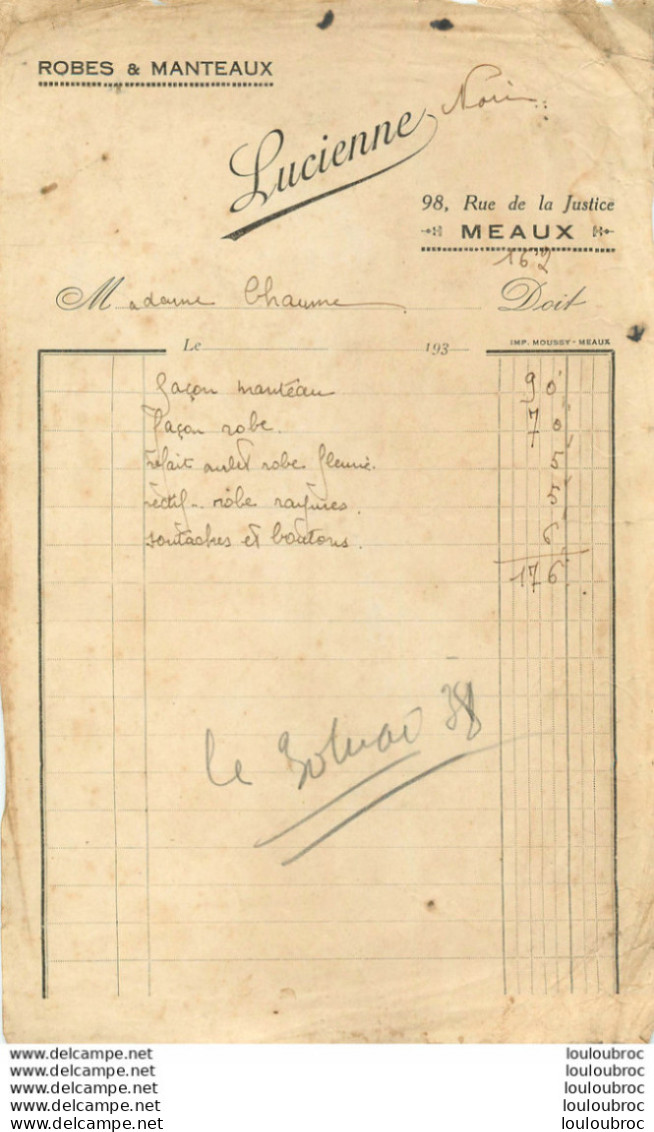 ROBES & MANTEAUX
Lucienne
98, Rue de la Justice
MEAUX
162
Madame Chaume Doit
Le 193
IMP. MOUSSY - MEAUX
façon manteau 90
façon robe. 70
refait robe fleurie. 5
rectif. robe rayures. 5
soutaches et boutons. 6
176
le 30 mai 38
www.delcampe.net louloubroc
www.delcampe.net louloubroc
www.delcampe.net louloubroc
www.delcampe.net louloubroc
www.delcampe.net louloubroc